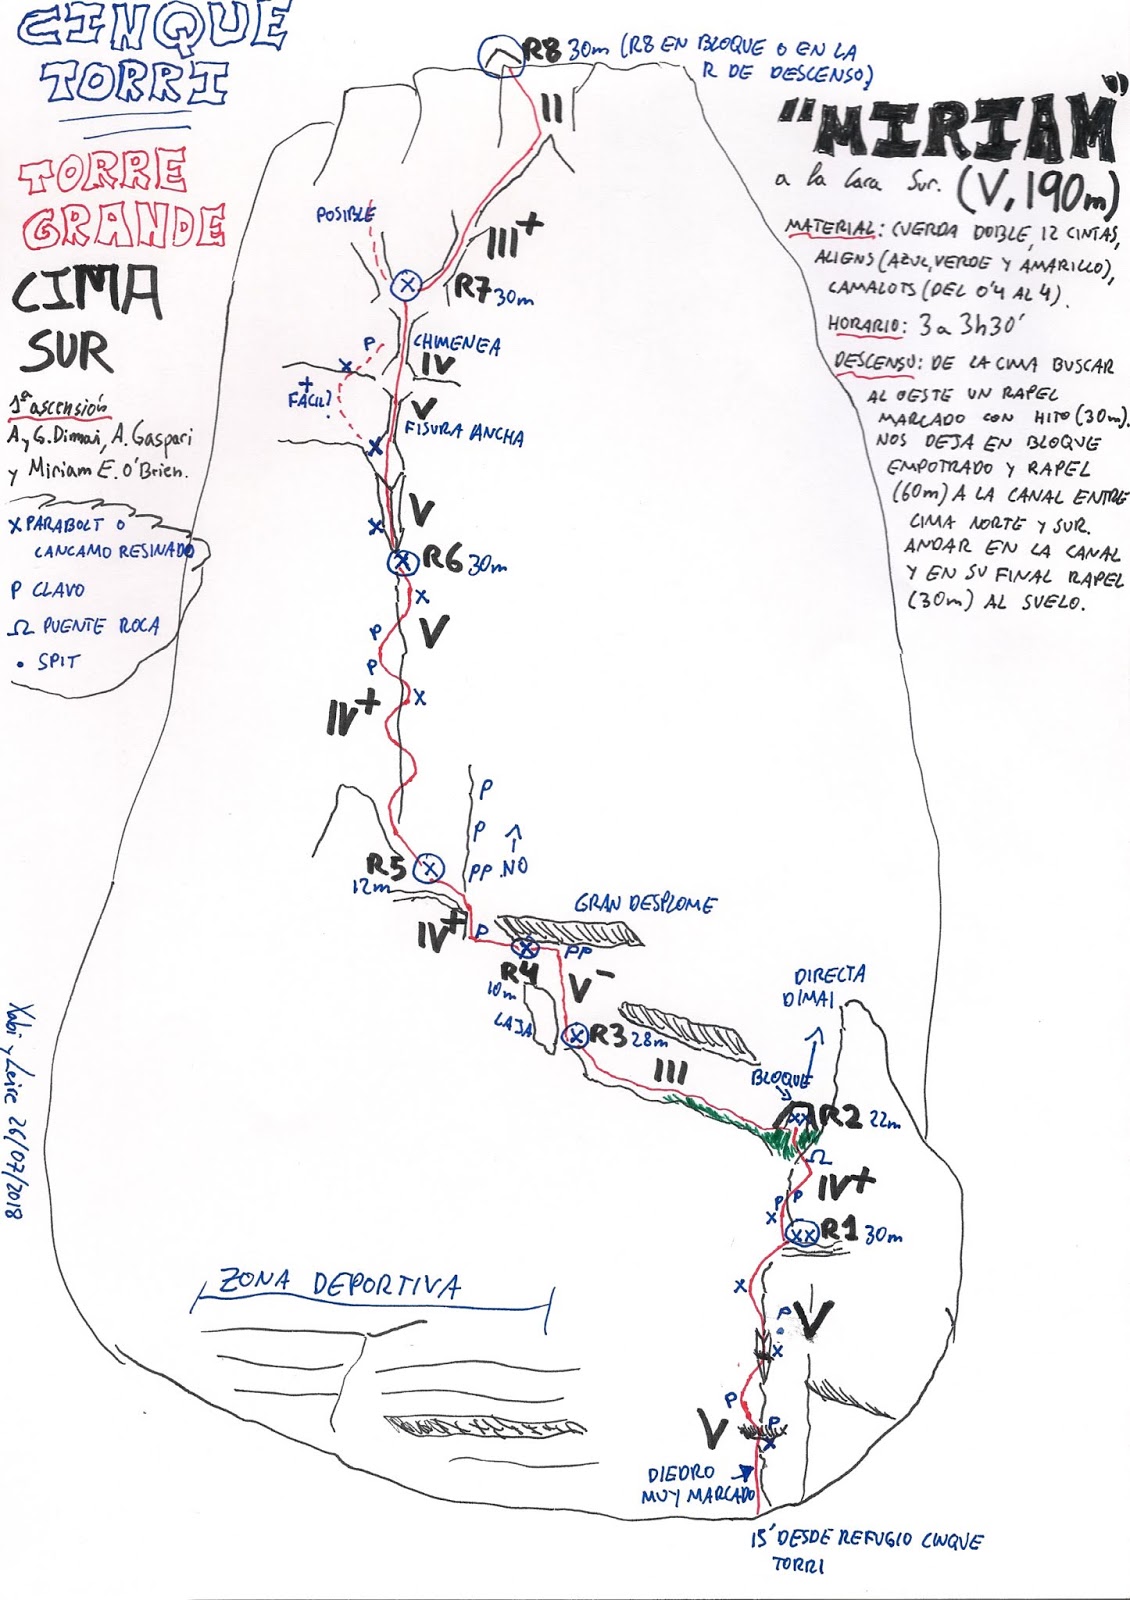 CINQUE
TORRI
TORRE
GRANDE
CIMA
SUR
1ª ascensión
A y G. Dimai, A. Gaspari
y Miriam E. O'Brien.
X PARABOLT O
CANCAMO RESINADO
P CLAVO
Ω PUENTE ROCA
• SPIT
"MIRIAM"
a la Cara Sur. (V, 190m)
MATERIAL: CUERDA DOBLE, 12 CINTAS,
ALIENS (AZUL, VERDE Y AMARILLO),
CAMALOTS (DEL 0'4 AL 4).
HORARIO: 3 a 3h30'
DESCENSO: DE LA CIMA BUSCAR
AL OESTE UN RAPEL
MARCADO CON HITO (30m).
NOS DEJA EN BLOQUE
EMPOTRADO Y RAPEL
(60m) A LA CANAL ENTRE
CIMA NORTE Y SUR.
ANDAR EN LA CANAL
Y EN SU FINAL RAPEL
(30m) AL SUELO.
R8 30m (R8 EN BLOQUE O EN LA
R DE DESCENSO)
II
POSIBLE
III+
X R7 30m
P CHIMENEA
IV
X
+
FÁCIL?
V
FISURA ANCHA
X
V
X
X R6 30m
X
P V
P
X
IV+
P
P
PP NO
R5 X
12m
GRAN DESPLOME
IV+ P
X PP
R4
10m
V-
LAJA
X R3 28m
DIRECTA
DIMAI
III
BLOQUE
XX R2 22m
Ω
IV+
P P
X
XX R1 30m
X
P V
X
ZONA DEPORTIVA
P
V P
X
DIEDRO
MUY MARCADO
15' DESDE REFUGIO CINQUE
TORRI
Xabi y Leire 26/07/2018